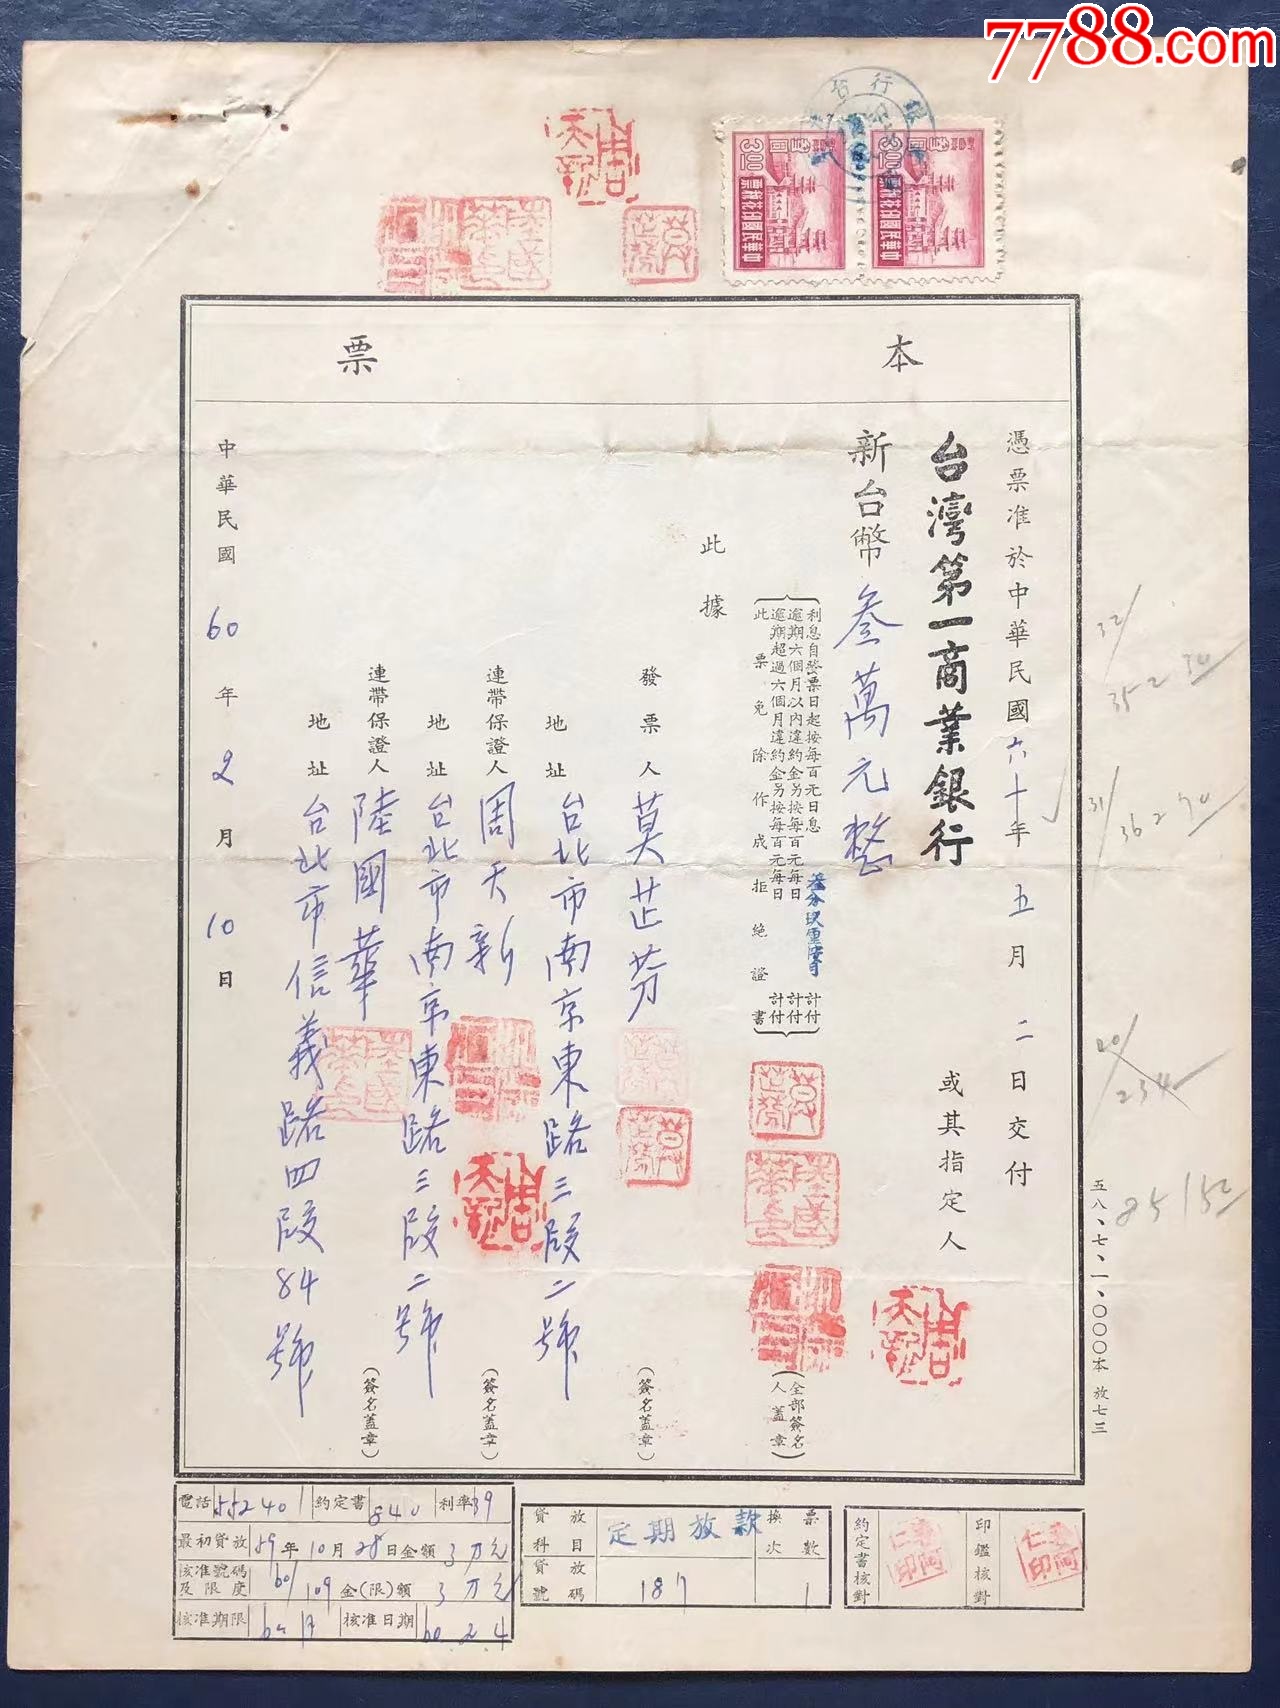 7788.com
本票
憑票准於中華民國六十年五月二日交付
台灣第一商業銀行或其指定人
新台幣叁萬元整
利息自發票日起按每百元日息叁分玖厘 計付
逾期六個月以內違約金另按每百元每日 計付
逾期超過六個月違約金另按每百元每日 計付
此票免除作成拒絕證書
(全部簽名人蓋章)
此據
發票人 莫芷芬 (簽名蓋章)
地址 台北市南京東路三段二號
連帶保證人 周天新 (簽名蓋章)
地址 台北市南京東路三段二號
連帶保證人 陸國華 (簽名蓋章)
地址 台北市信義路四段84號
中華民國60年2月10日
五八、七、一、〇〇〇本 放七三
中華民國印花稅票
3.00
中華民國印花稅票
3.00
電話 552401 約定書 840 利率 39
最初貸放 59年10月28日金額 3万元
核准號碼及限度 60/109 金(限)額 3万元
核准期限 核准日期 60 2 4
貸放科目 定期放款 換票次數 1
貸放號碼 187
約定書核對
印鑑核對